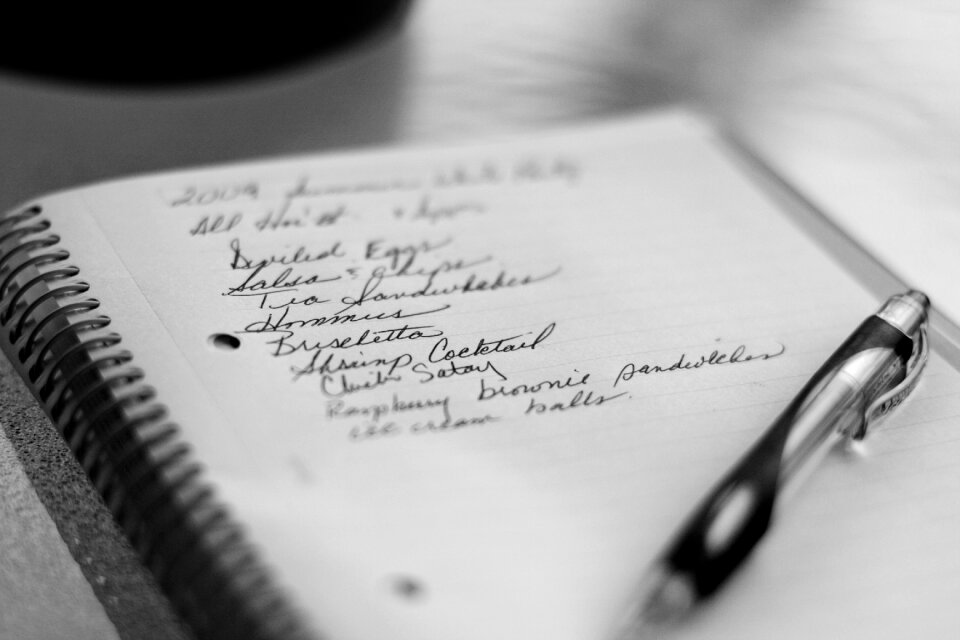 2009 Summer White Party
All
Deviled Eggs
Salsa & Chips
Tea Sandwhiches
Hommus
Bruschetta
Shrimp Cocktail
Chicken Satay
Raspberry brownie sandwiches
ice cream balls.